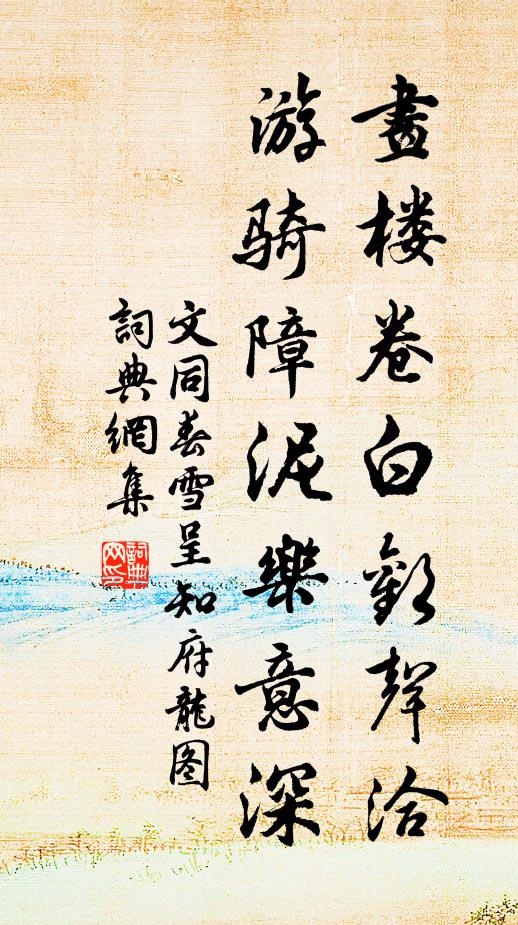 畫楼卷白歡聲洽
游骑障泥樂意深
文同春雪呈知府龍图
詞典網集
詞典网印